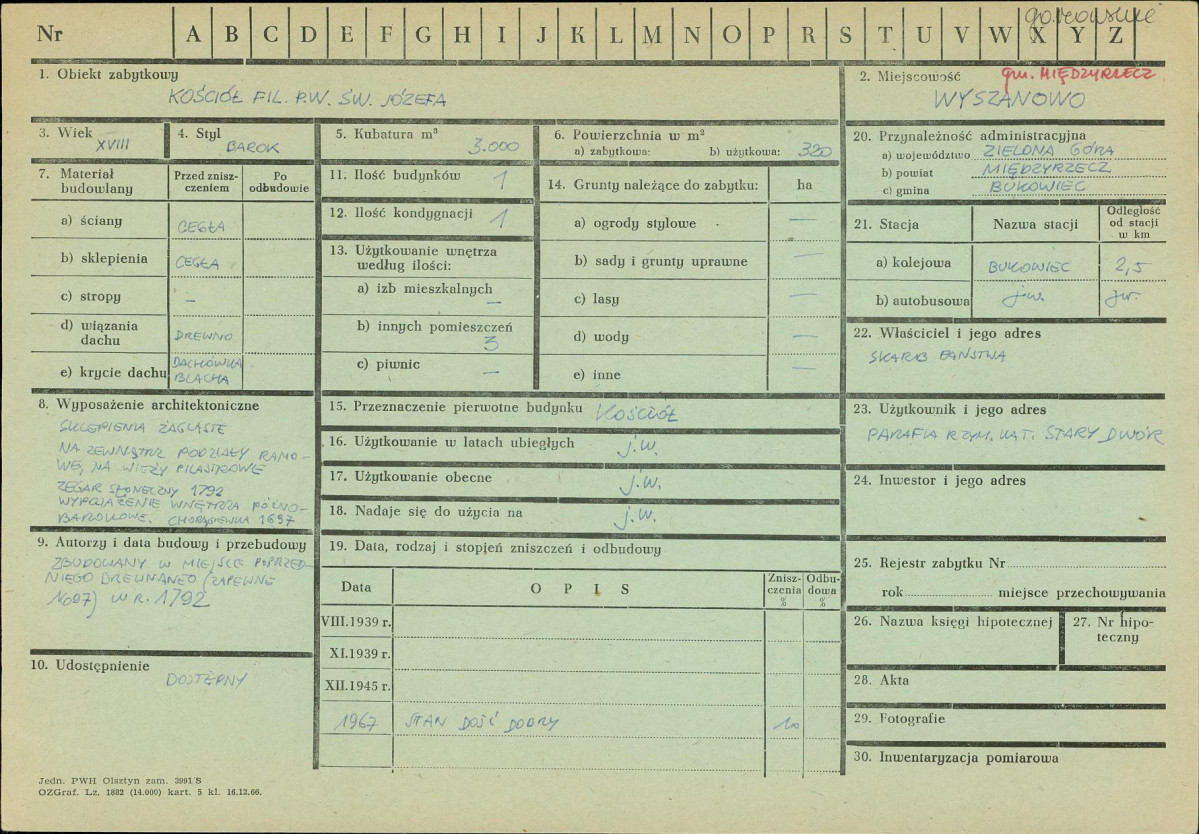 gorzowskie
Nr A B C D E F G H I J K L M N O P R S T U V W X Y Z
1. Obiekt zabytkowy
KOŚCIÓŁ FIL. P.W. ŚW. JÓZEFA
2. Miejscowość
gm. MIĘDZYRZECZ
WYSZANOWO
3. Wiek
XVIII
4. Styl
BAROK
5. Kubatura m³
3.000
6. Powierzchnia w m²
a) zabytkowa: b) użytkowa: 320
7. Materiał budowlany
Przed znisz-
czeniem
Po
odbudowie
a) ściany CEGŁA
b) sklepienia CEGŁA
c) stropy –
d) wiązania
dachu DREWNO
e) krycie dachu DACHÓWKA
BLACHA
8. Wyposażenie architektoniczne
SKLEPIENIA ŻAGLASTE
NA ZEWNĄTRZ PODZIAŁY RAMO-
WE, NA WIEŻY PILASTROWE
ZEGAR SŁONECZNY 1792
WYPOSAŻENIE WNĘTRZA PÓŹNO-
BAROKOWE. CHORĄGIEWKA 1697
9. Autorzy i data budowy i przebudowy
ZBUDOWANY W MIEJSCE POPRZED-
NIEGO DREWNANEO (ZAPEWNE
1697) W R. 1792
10. Udostępnienie
DOSTĘPNY
11. Ilość budynków 1
12. Ilość kondygnacji 1
13. Użytkowanie wnętrza
według ilości:
a) izb mieszkalnych
–
b) innych pomieszczeń
3
c) piwnic –
14. Grunty należące do zabytku: ha
a) ogrody stylowe –
b) sady i grunty uprawne –
c) lasy –
d) wody –
e) inne –
15. Przeznaczenie pierwotne budynku KOŚCIÓŁ
16. Użytkowanie w latach ubiegłych j.w.
17. Użytkowanie obecne j.w.
18. Nadaje się do użycia na j.w.
19. Data, rodzaj i stopień zniszczeń i odbudowy
Data OPIS Znisz-
czenia
% Odbu-
dowa
%
VIII.1939 r.
XI.1939 r.
XII.1945 r.
1967 STAN DOŚĆ DOBRY 10
20. Przynależność administracyjna
a) województwo ZIELONA GÓRA
b) powiat MIĘDZYRZECZ
c) gmina BUKOWIEC
21. Stacja Nazwa stacji Odległość
od stacji
w km
a) kolejowa BUKOWIEC 2,5
b) autobusowa j.w. j.w.
22. Właściciel i jego adres
SKARB PAŃSTWA
23. Użytkownik i jego adres
PARAFIA RZYM. KAT. STARY DWÓR
24. Inwestor i jego adres
25. Rejestr zabytku Nr
rok miejsce przechowywania
26. Nazwa księgi hipotecznej
27. Nr hipo-
teczny
28. Akta
29. Fotografie
30. Inwentaryzacja pomiarowa
Jedn. PWH Olsztyn zam. 3991/S
OZGraf. Lz. 1882 (14.000) kart. 5 kl. 16.12.66.